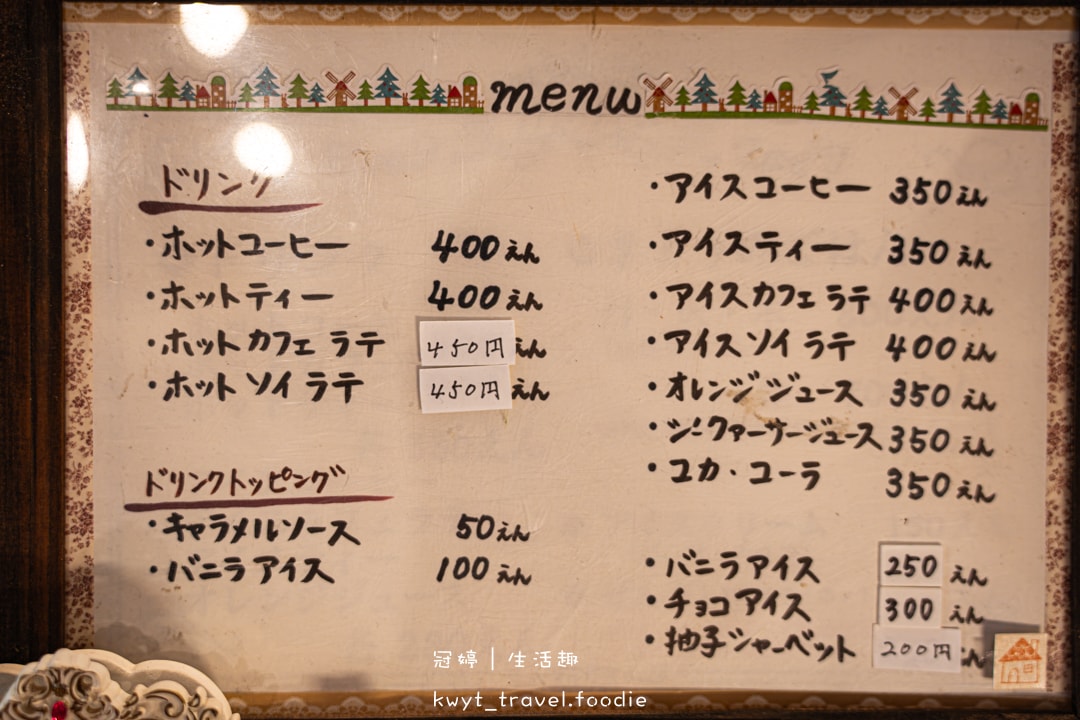 menu
ドリンク
・ホットコーヒー 400えん
・ホットティー 400えん
・ホットカフェラテ 450円 えん
・ホットソイラテ 450円 えん
ドリンクトッピング
・キャラメルソース 50えん
・バニラアイス 100えん
・アイスコーヒー 350えん
・アイスティー 350えん
・アイスカフェラテ 400えん
・アイスソイラテ 400えん
・オレンジジュース 350えん
・シークァーサージュース 350えん
・コカ・コーラ 350えん
・バニラアイス 250えん
・チョコアイス 300えん
・柚子シャーベット 200円 えん
冠婷|生活趣
kwyt_travel.foodie